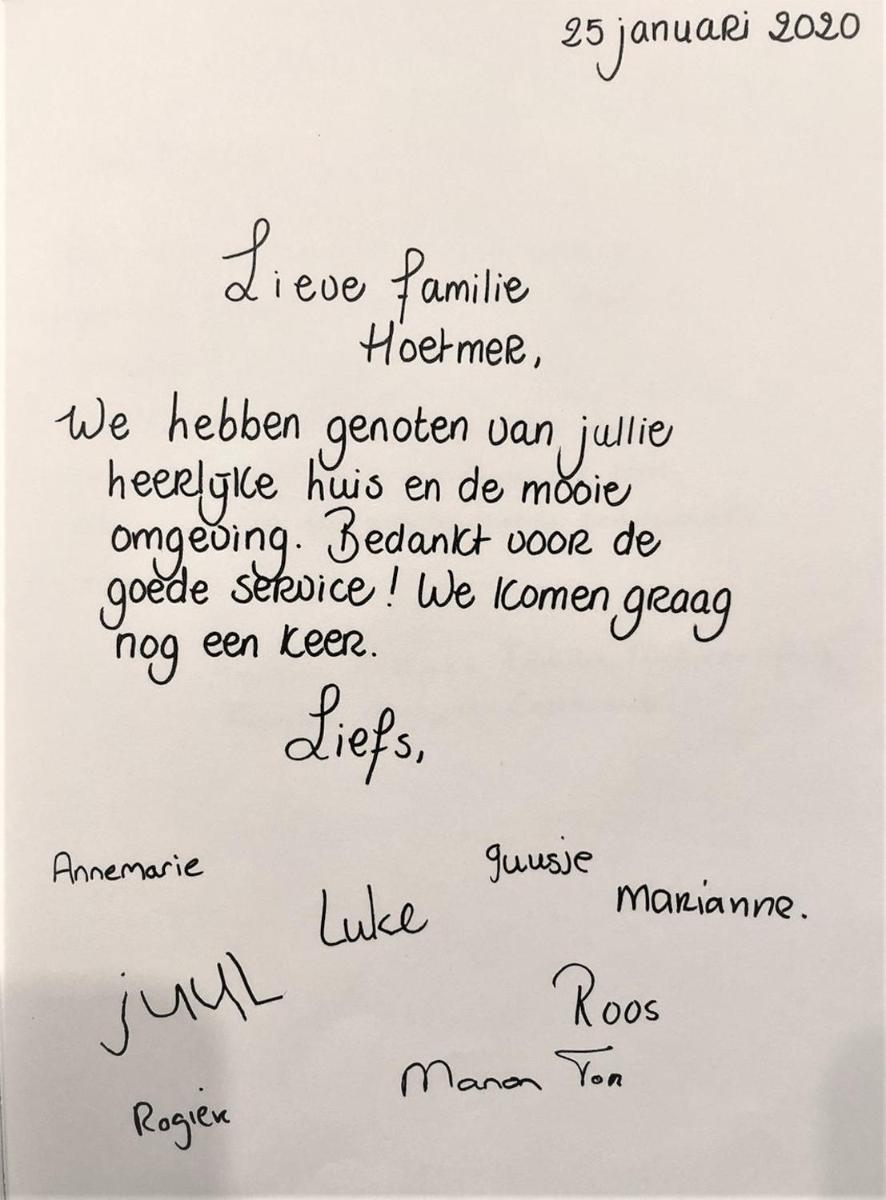 25 januari 2020
Lieve familie
Hoetmer,
We hebben genoten van jullie
heerlijke huis en de mooie
omgeving. Bedankt voor de
goede service! We komen graag
nog een keer.
Liefs,
Annemarie
guusje
Luke
Marianne.
juul
Roos
Manon Ton
Rogier